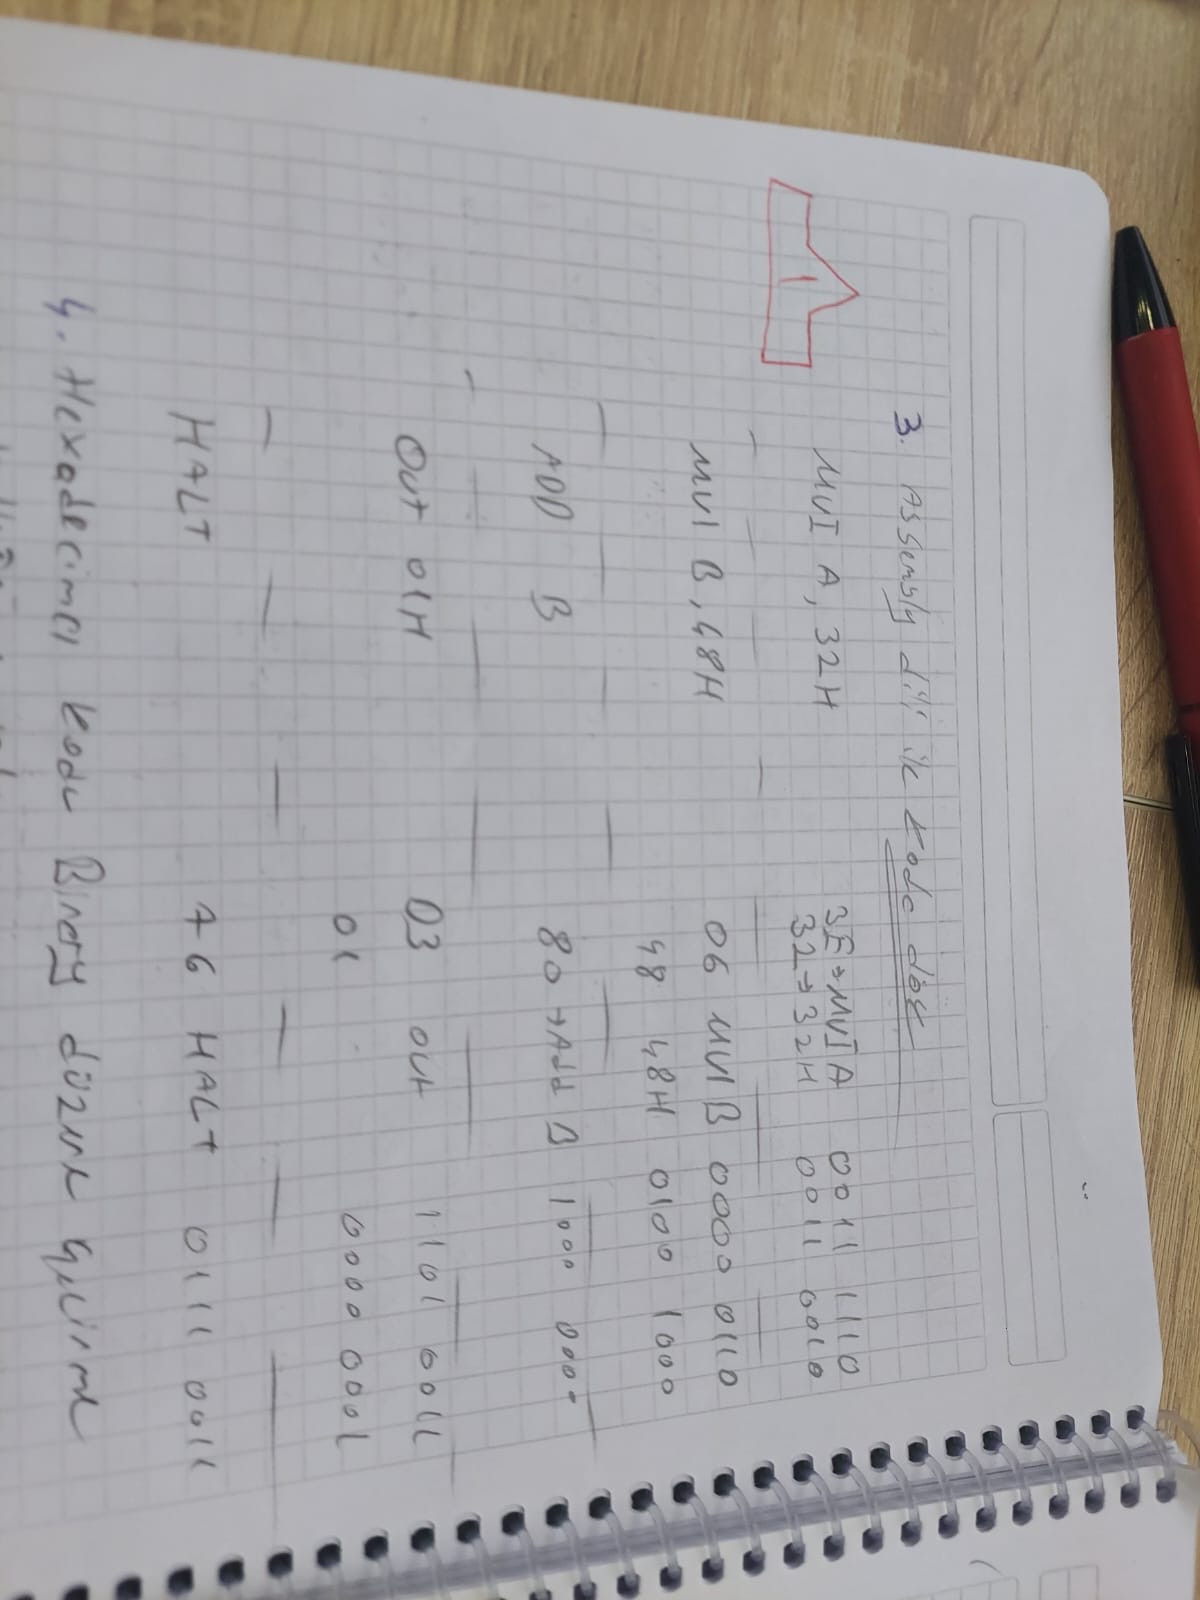 3. Assembly dili ile kodc dök
MVI A, 32H 3E → MVI A 0011 1110
32 → 32H 0011 0010
1
MVI B, 48H 06 MVI B 0000 0110
48 48H 0100 1000
ADD B 80 → Add B 1000 0000
Out 01H D3 out 1101 0011
01 0000 0001
HALT 76 HALT 0111 0011
4. Hexadecimal kodu Binary düzene çevirme